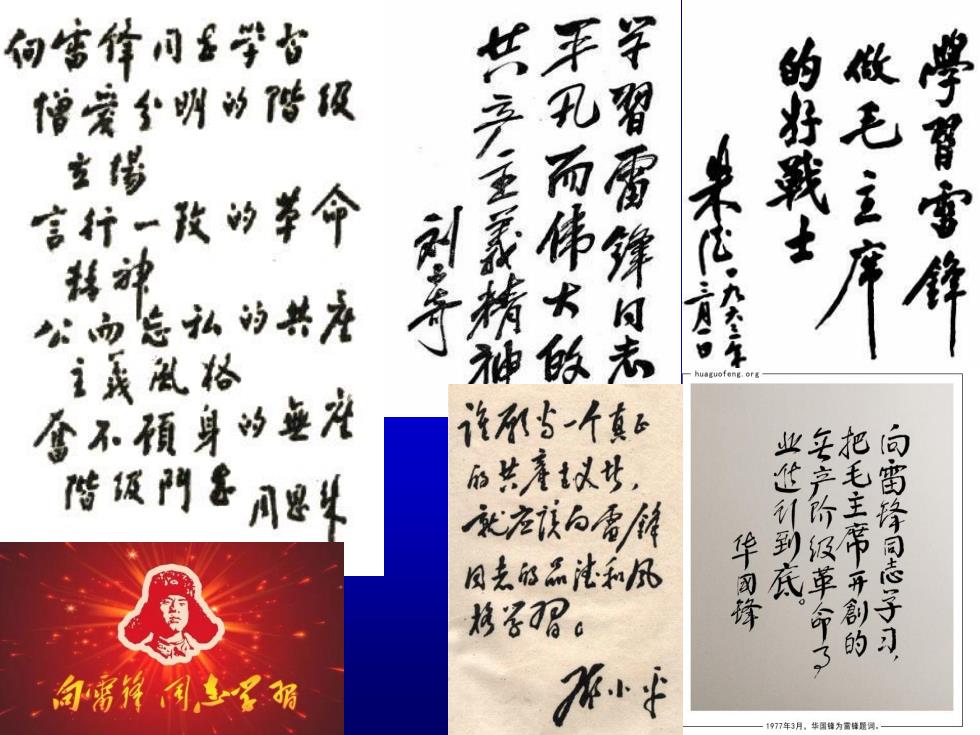 向雷锋同志学習
憎爱分明的階级
立場
言行一致的革命
精神
公而忘私的共産
主義風格
奮不顧身的無産
階级鬥志
周恩来
学習雷锋同志
平凡而伟大的
共产主義精神
刘少奇
學習雷鋒
做毛主席
的好戰士
朱德
一九六三年
三月一日
谁愿当一个真正
的共産主义者，
就应该向雷鋒
同志的品德和风
格学習。
邓小平
huaguofeng.org
向雷锋同志学习，
把毛主席开創的
无产阶级革命事
业进行到底。
华国锋
1977年3月，华国锋为雷锋题词。
向雷锋同志学習